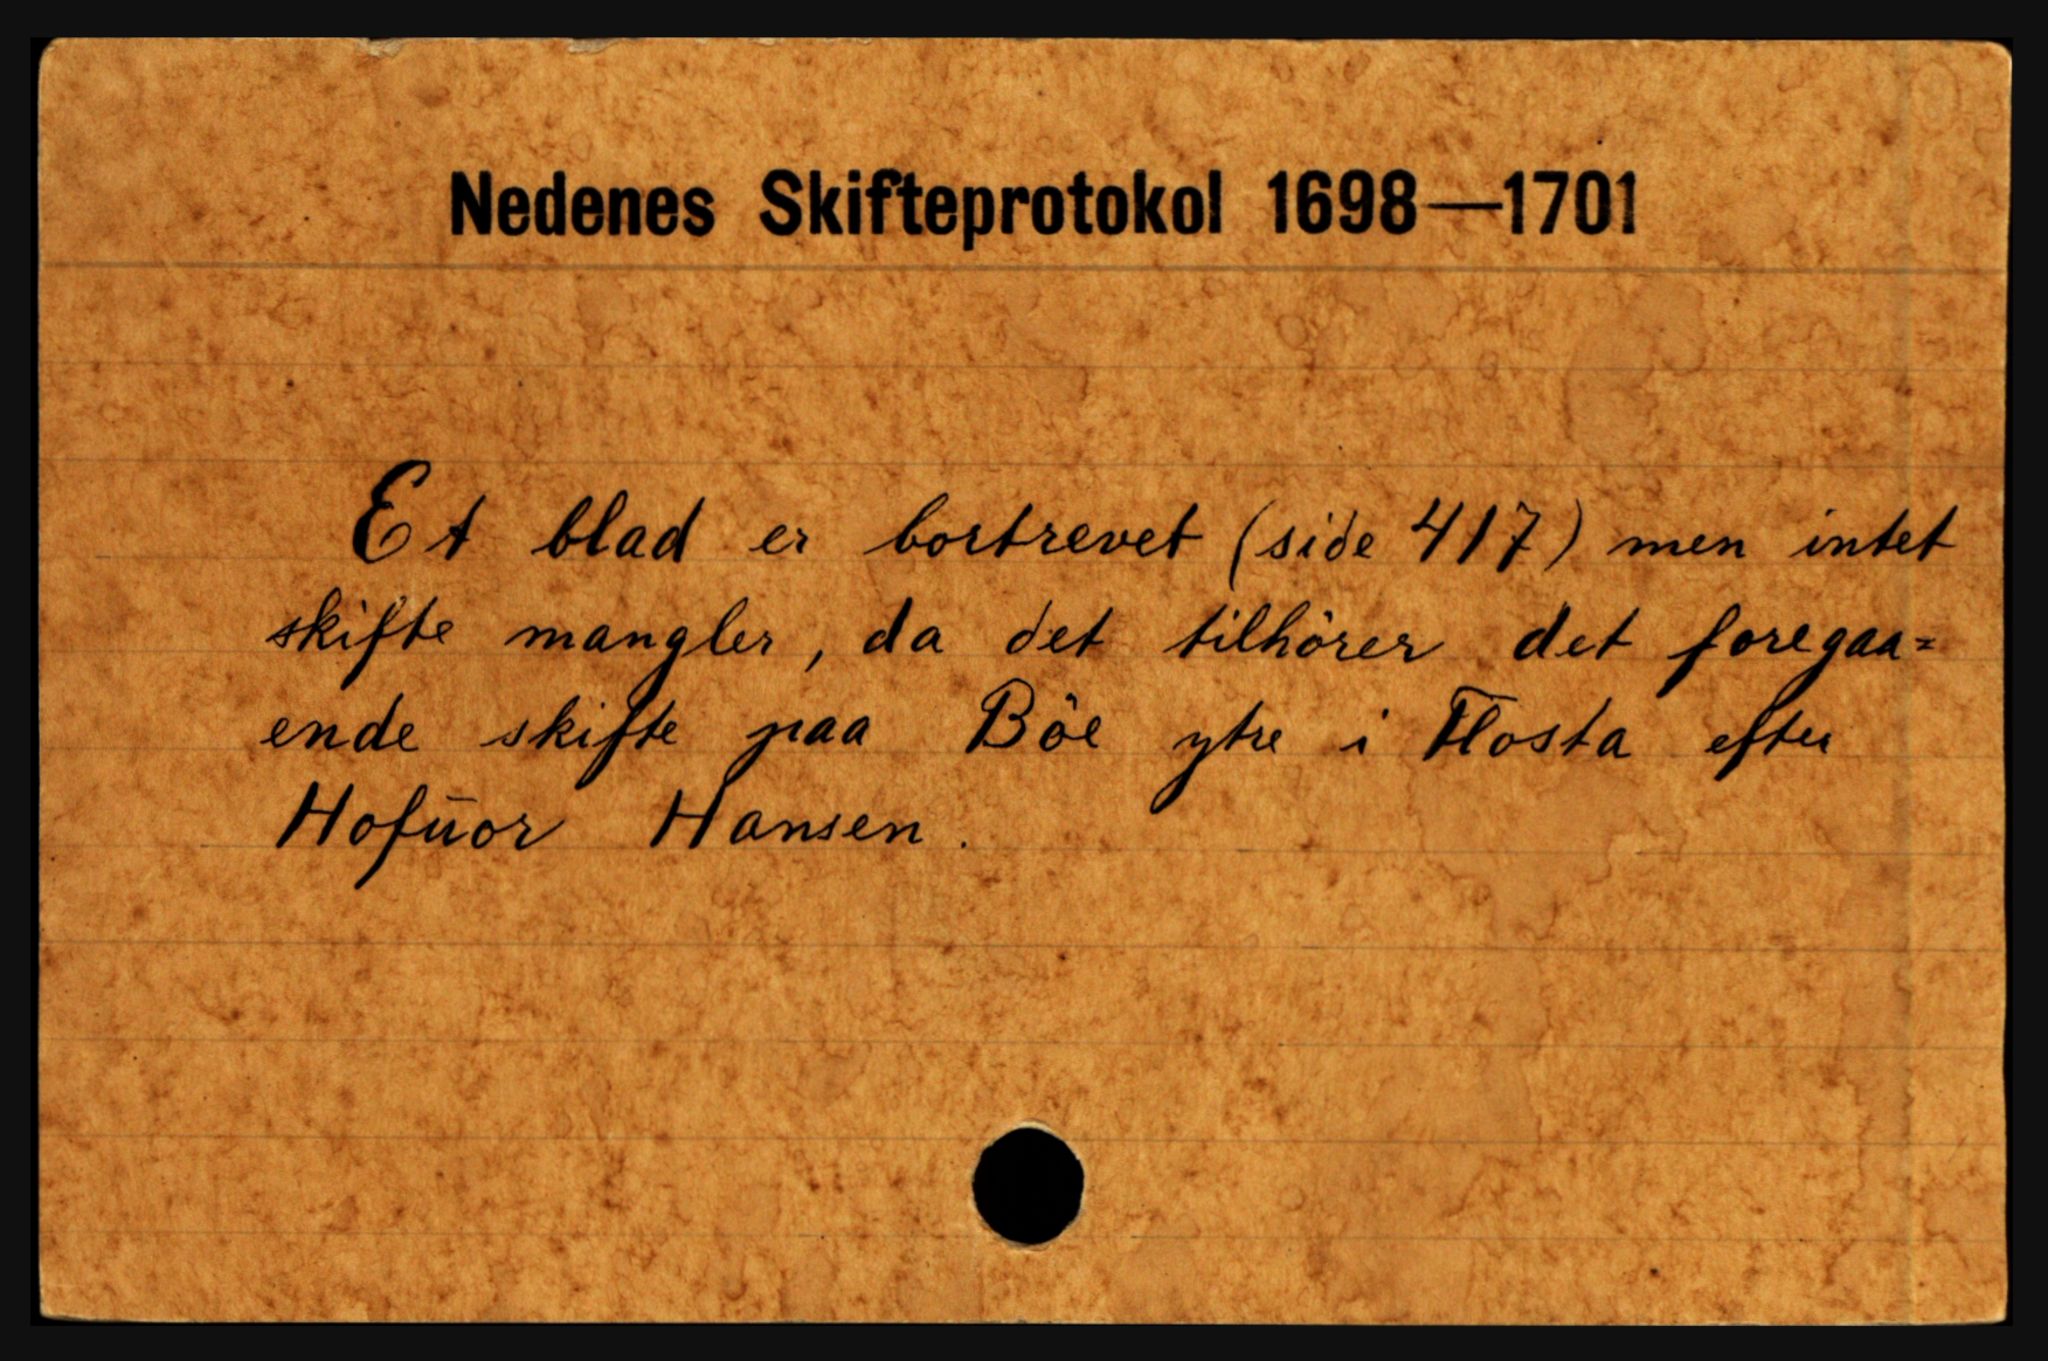 Nedenes Skifteprotokol 1698—1701
Et blad er bortrevet (side 417) men intet
skifte mangler, da det tilhörer det foregaa=
ende skifte paa Böe ytre i Flosta efter
Hofūor Hansen.